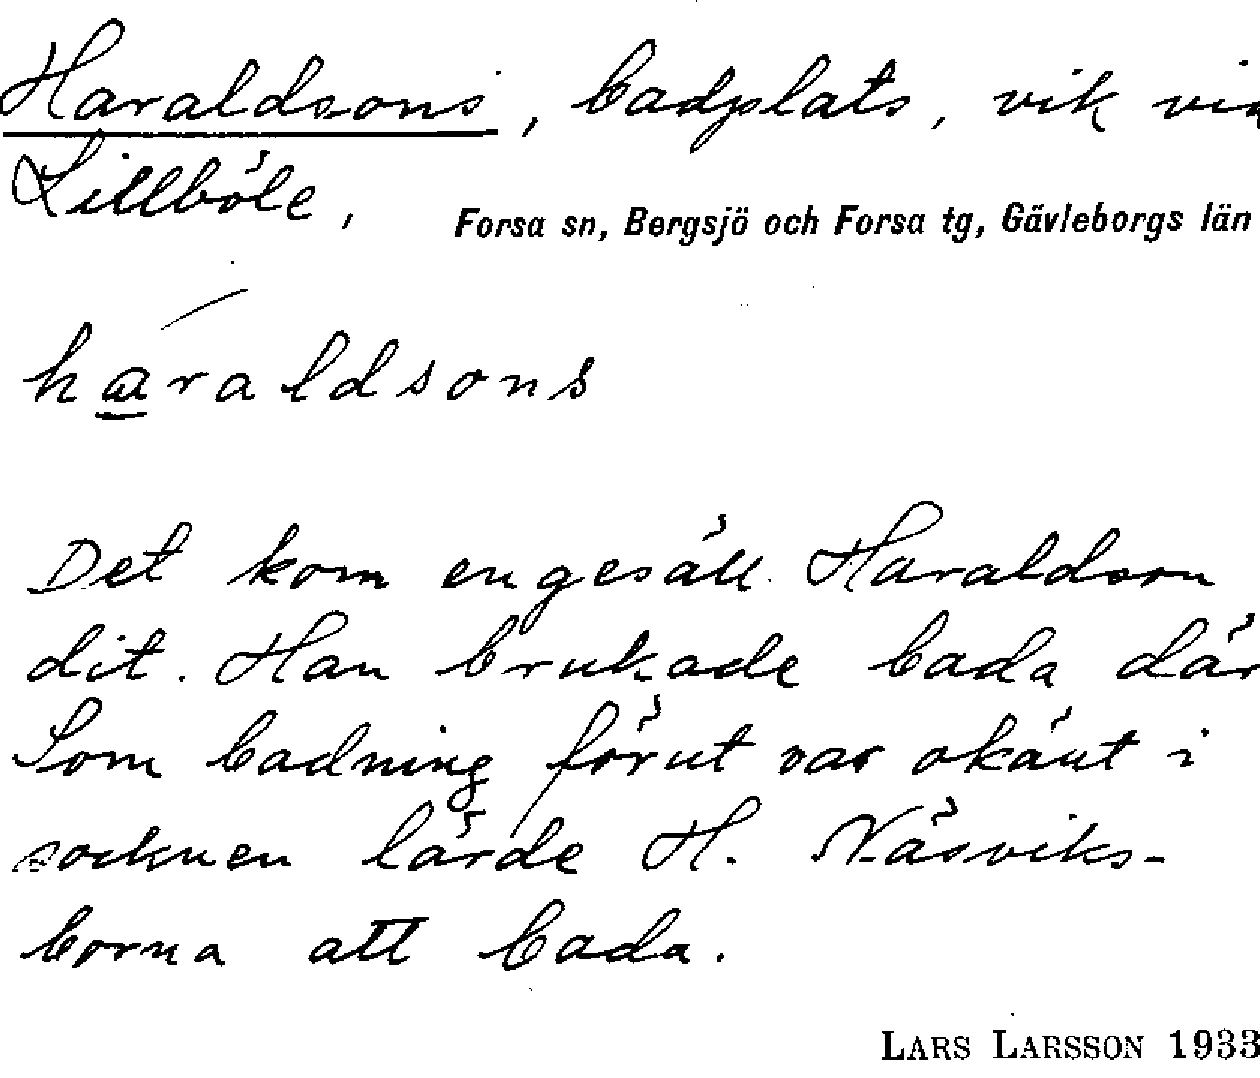 Haraldsons, badplats, vik vid
Lillböle, Forsa sn, Bergsjö och Forsa tg, Gävleborgs län
haraldsons
Det kom en gesäll Haraldson
dit. Han brukade bada där
Som badning förut var okänt i
socknen lärde H. Näsviks-
borna att bada.
LARS LARSSON 1933